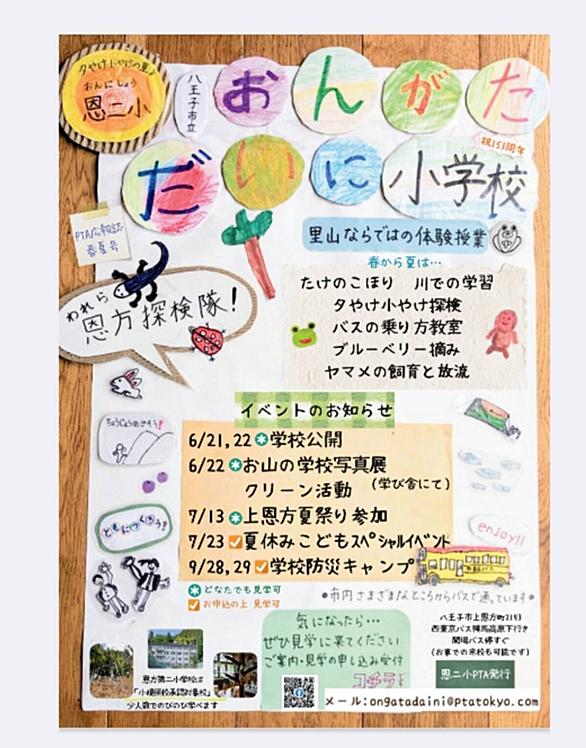 夕やけ小やけの里♪
おんにしょう
恩二小
八王子市立
おんがた
だいに小学校
祝151周年
PTA広報誌
春夏号
里山ならではの体験授業
春から夏は…
たけのこほり 川での学習
夕やけ小やけ探検
バスの乗り方教室
ブルーベリー摘み
ヤマメの飼育と放流
われら
恩方探検隊!
イベントのお知らせ
6/21,22 学校公開
6/22 お山の学校写真展
クリーン活動 (学び舎にて)
7/13 上恩方夏祭り参加
7/23 夏休みこどもスペシャルイベント
9/28,29 学校防災キャンプ
どなたでも見学可
お申込の上 見学可
ちょうじょうめざそう!
ともにつくろう!
enjoy!!
●市内さまざまなところからバスで通っています●
気になったら…
ぜひ見学に来てください
ご案内・見学の申し込み受付
コチラ
八王子市上恩方町2193
西東京バス陣馬高原下行き
関場バス停すぐ
(お車での来校も可能です)
恩二小PTA発行
恩方第二小学校は
「小規模校承認対象校」
少人数でのびのび学べます
メール:ongatadaini@ptatokyo.com